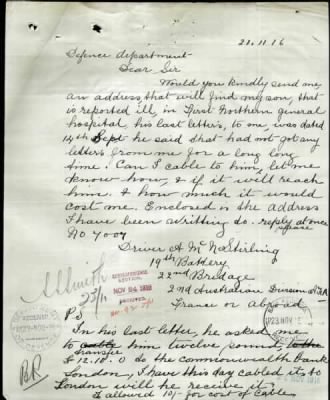 21.11.16
Defence department
Dear Sir
Would you kindly send me
an address that will find my son, that
is reported ill in First Northern general
hospital his last letters, to me was dated
14th Sept he said that had not got any
letters from me for a long long
time. Can I cable to him, let me
know how, & if it will reach
him. & how much it would
cost me. Enclosed is the address
I have been writting to. reply at once
please
No 7007
Driver A Mc N Stirling
19th Battery
22nd Bregade
2nd Australian Divison A.I.F.A
France or abroad
P S
In his last letter, he asked me
to cable him twelve pound to the
transfer
£12.10.0 to the Commonwealth bank
London, I have this day cabled it to
London will he receive it.
I allowed 10/- for cost of Cable
23/11
NOV 24 1916
23 NOV
BR